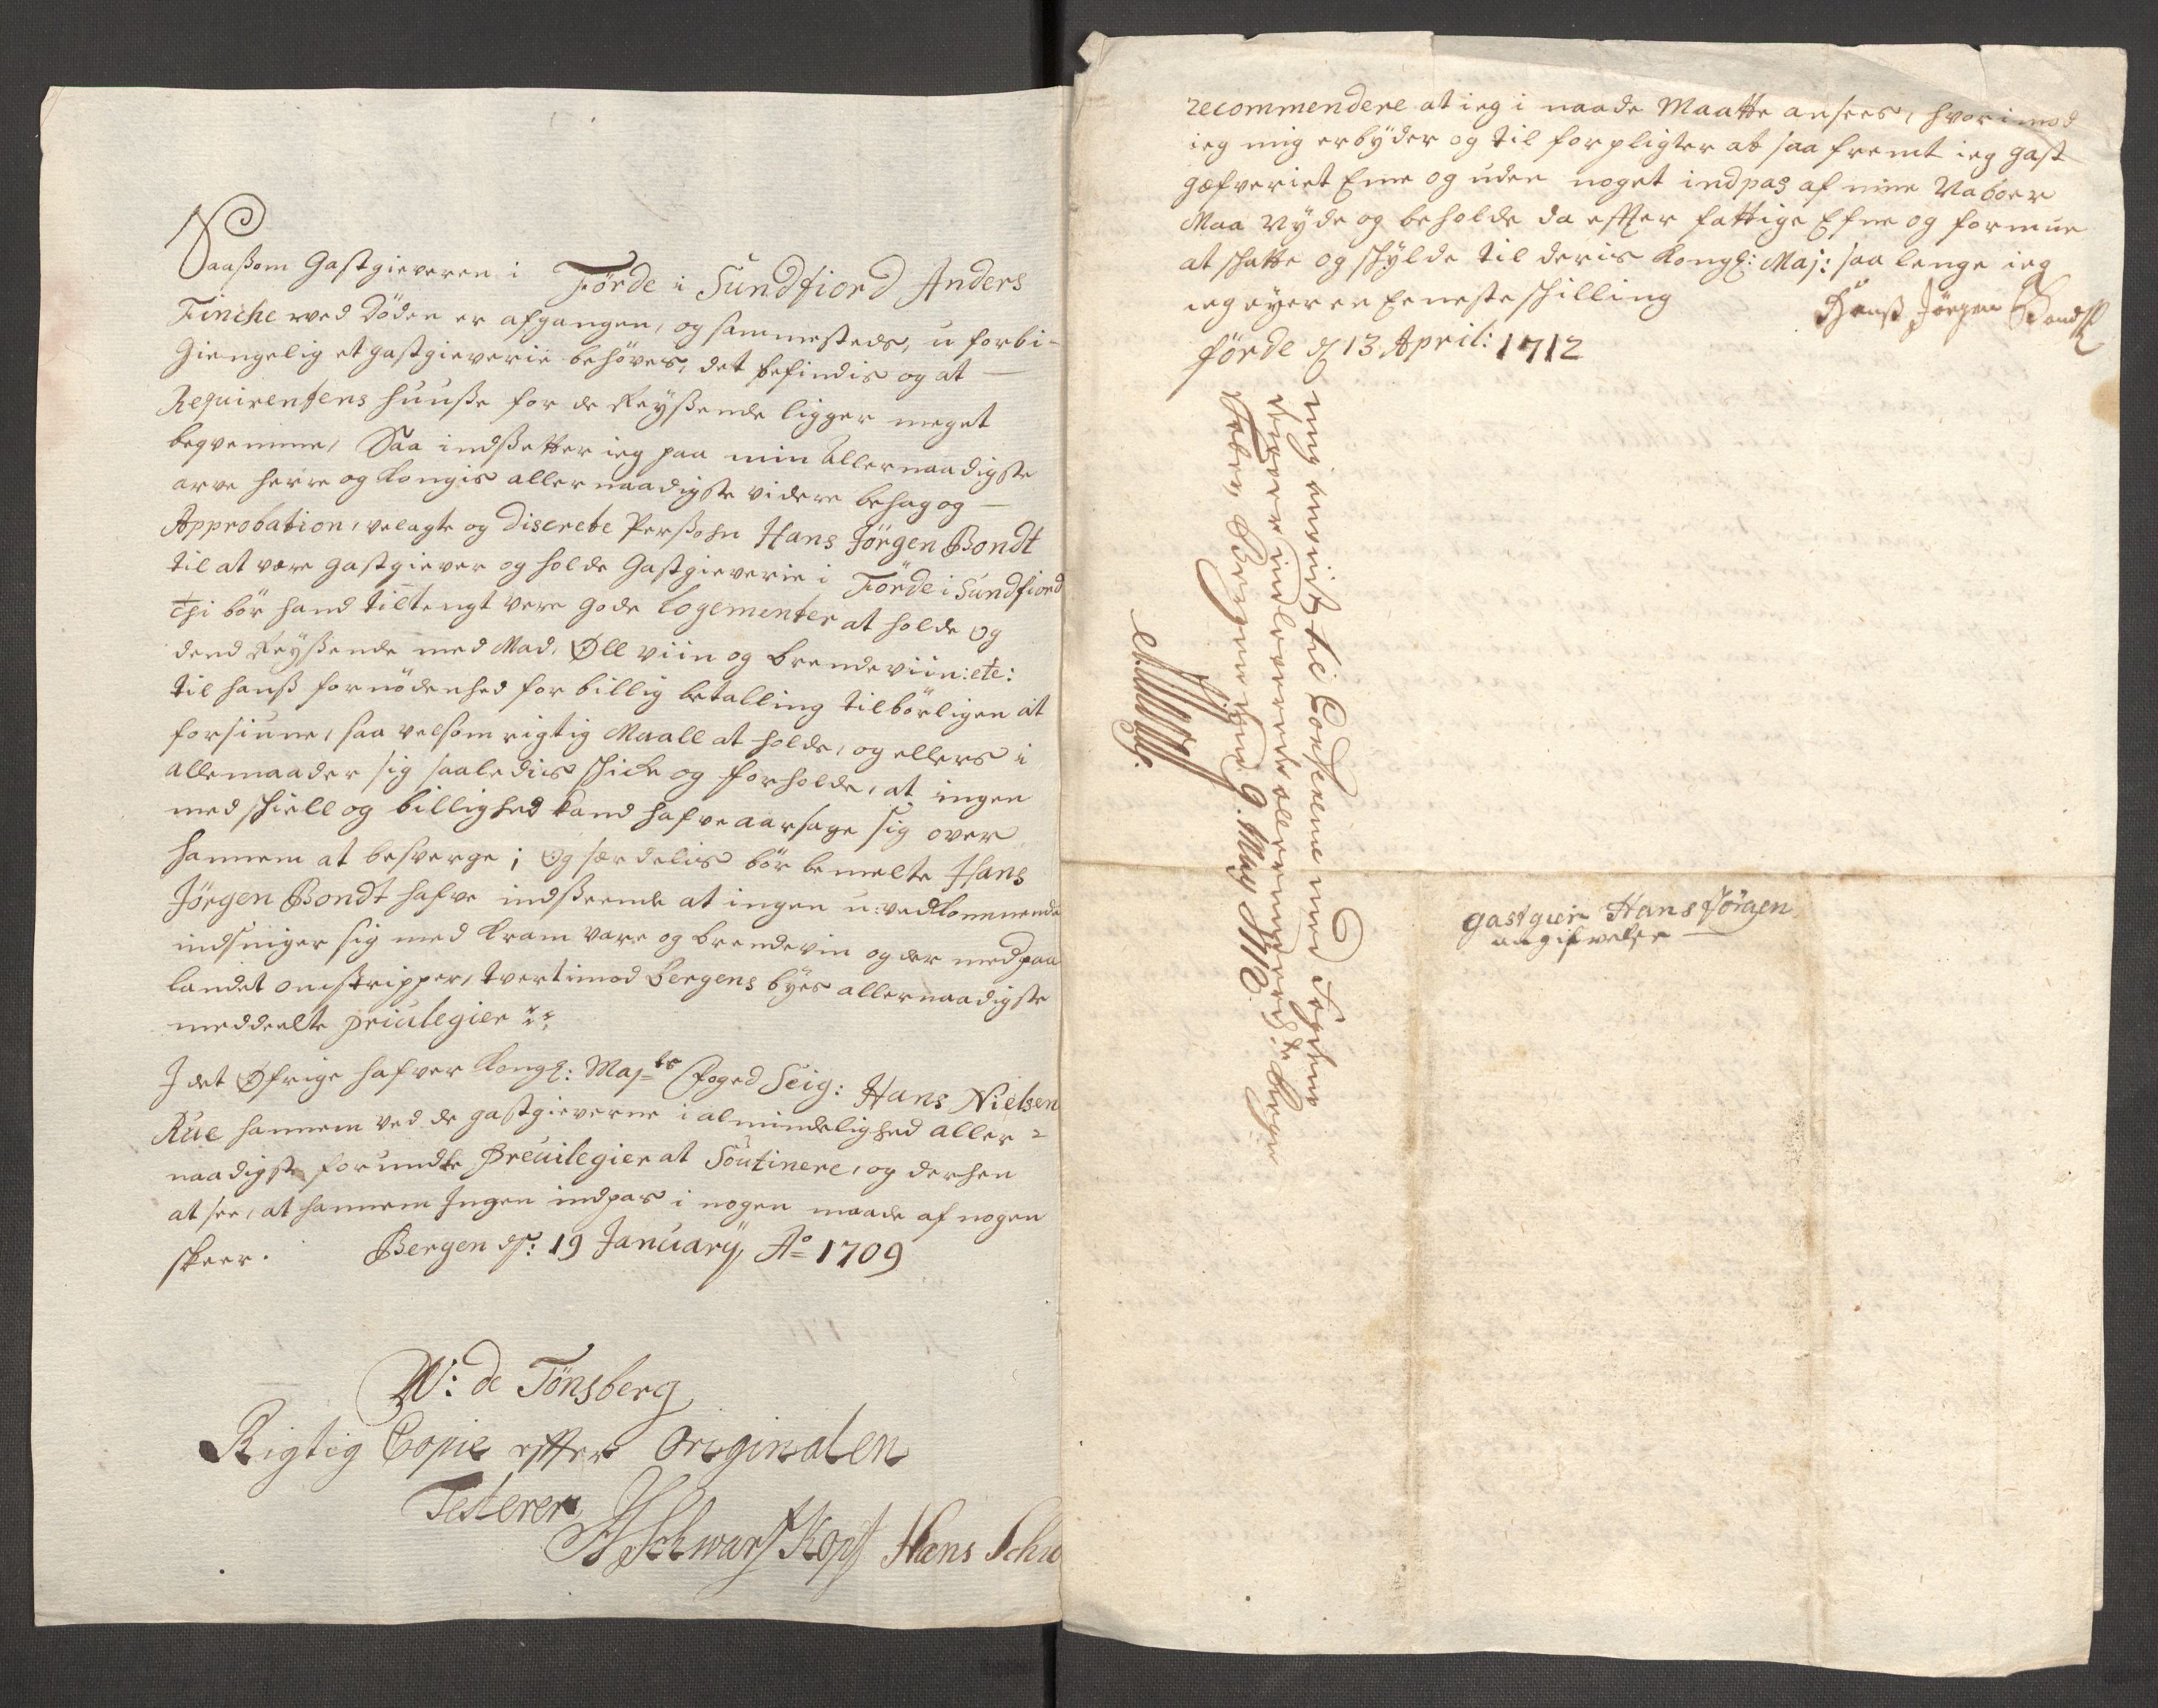 Saasom Gastgieveren i Förde i Sundfiord Anders
Finche ved Döden er afgangen, og sammesteds, u forbi-
giengelig et gastgieverie behöves, det befindis og at
Requirentens huusse for de Reyssende ligger meget
beqvemme, Saa indssetter ieg paa min Allernaadigste
arve herre og Kongis allernaadigste videre behag og
Approbation, velagte og Discrete Perssohn Hans Jörgen Bondt
til at være gastgiever og holde Gastgieverie i Förde i Sundfiord
Thi bör hand tiltengt vere gode Logementer at holde og
dend Reyssende med Mad, Øll viin og brendeviin: etc:
til hanss fornödenhed for billig betalling tilbörligen at
forsiune, saa velsom rigtig Maall at holde, og ellers i
allemaader sig saaledis schicke og forholde, at ingen
med schiell og billighed kand hafve aarsage sig over
hannem at besverge; Og særdelis bör bemelte Hans
Jörgen Bondt hafve indsseende at ingen u-vedkommende
indsniger sig med kram vare og brendevin og der med paa
landet omstripper, tvertimod Bergens byes allernaadigste
meddeelte priulegier
I det Øfrige hafver Kongl: Maj:ts foged Seig: Hans Nielsen
Rue hannem ved de gastgieverne i almindelighed aller-
naadigste forundte Preuilegier at Soutinere, og derhen
at see, at hannem Ingen indpas i nogen maade af nogen
skeer. Bergen d: 19 January Ao 1709
W: de Tönsberg
Rigtig Copie effter Originalen
Testerer
Schwartzkopf Hans Schu
recommendere at ieg i naade Maatte ansees, hvorimod
ieg mig erbÿder og til forpligter at saa fremt ieg gast
gæfveriet Ene og uden noget indpas af mine Naboer
Maa Nyde og beholde da effter fattige Efne og formue
at schatte og schylde til deris Kongl: Maj: saa lenge ieg
ieg eyer en Eeneste schilling
Hanss Jörgen Bondt
förde d 13 April: 1712
gastgier Hans Jörgen
angifvelse